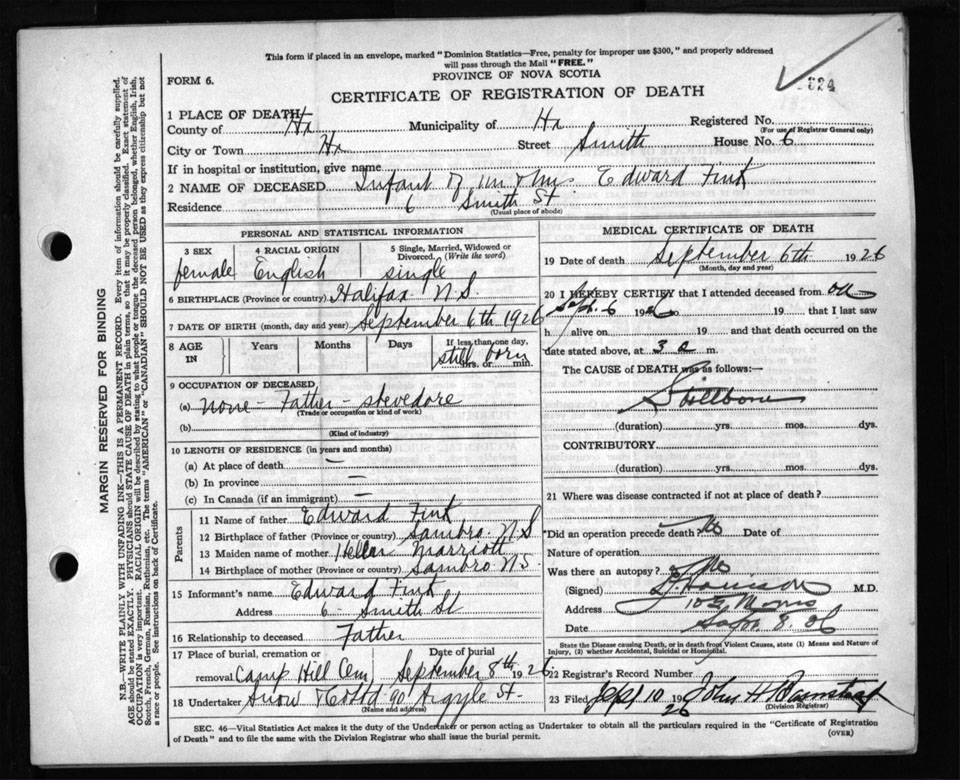 This form if placed in an envelope, marked "Dominion Statistics—Free, penalty for improper use $300," and properly addressed
will pass through the Mail "FREE."
PROVINCE OF NOVA SCOTIA
FORM 6.
CERTIFICATE OF REGISTRATION OF DEATH
1 PLACE OF DEATH
County of Hx Municipality of Hx Registered No.
(For use of Registrar General only)
City or Town Hx Street Smith House No. 6
If in hospital or institution, give name
2 NAME OF DECEASED Infant of Edward Fink
Residence 6 Smith St
(Usual place of abode)
PERSONAL AND STATISTICAL INFORMATION
3 SEX 4 RACIAL ORIGIN 5 Single, Married, Widowed or
Divorced. (Write the word)
female English single
6 BIRTHPLACE (Province or country) Halifax N.S.
7 DATE OF BIRTH (month, day and year) September 6th 1926
8 AGE IN Years Months Days If less than one day
still born
hrs. or min.
9 OCCUPATION OF DECEASED
(a) none - Father - stevedore
(Trade or occupation or kind of work)
(b)
(Kind of industry)
10 LENGTH OF RESIDENCE (in years and months)
(a) At place of death —
(b) In province —
(c) In Canada (if an immigrant) —
Parents
11 Name of father Edward Fink
12 Birthplace of father (Province or country) Sambro N.S
13 Maiden name of mother Marriott
14 Birthplace of mother (Province or country) Sambro NS
15 Informant's name Edward Fink
Address 6 - Smith St
16 Relationship to deceased Father
17 Place of burial, cremation or removal Camp Hill Cem Date of burial September 8th 1926
18 Undertaker Snow 90 Argyle St
(Name and address)
MEDICAL CERTIFICATE OF DEATH
19 Date of death September 6th 1926
(Month, day and year)
20 I HEREBY CERTIFY that I attended deceased from on
Sept. 6 1926 to 19 that I last saw
h alive on 19 and that death occurred on the
date stated above, at 3 a m.
The CAUSE of DEATH was as follows:—
Stillborn
(duration) yrs. mos. dys.
CONTRIBUTORY.
(duration) yrs. mos. dys.
21 Where was disease contracted if not at place of death?
Did an operation precede death? No Date of
Nature of operation
Was there an autopsy? No
(Signed) M.D.
Address Morris
Date Sept. 8. 26
State the Disease causing Death, or in death from Violent Causes, state (1) Means and Nature of
Injury, (2) whether Accidental, Suicidal or Homicidal.
22 Registrar's Record Number
23 Filed Sept 10 1926 John H Barnstead
(Division Registrar)
SEC. 46—Vital Statistics Act makes it the duty of the Undertaker or person acting as Undertaker to obtain all the particulars required in the "Certificate of Registration
of Death" and to file the same with the Division Registrar who shall issue the burial permit.
(OVER)
MARGIN RESERVED FOR BINDING
N.B.—WRITE PLAINLY WITH UNFADING INK—THIS IS A PERMANENT RECORD. Every item of information should be carefully supplied.
AGE should be stated EXACTLY. PHYSICIANS should STATE CAUSE OF DEATH in plain terms, so that it may be properly classified. Exact statement of
OCCUPATION is very important. RACIAL ORIGIN will be described by stating to what people or tongue the deceased person belonged, whether English, Irish,
Scotch, French, German, Russian, Ruthenian, etc. The terms "AMERICAN" or "CANADIAN" SHOULD NOT BE USED as they express citizenship but not
a race or people. See instructions on back of Certificate.